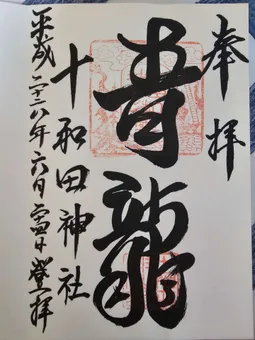 奉拝
青龍
十和田神社
平成二十八年六月二四日登拝